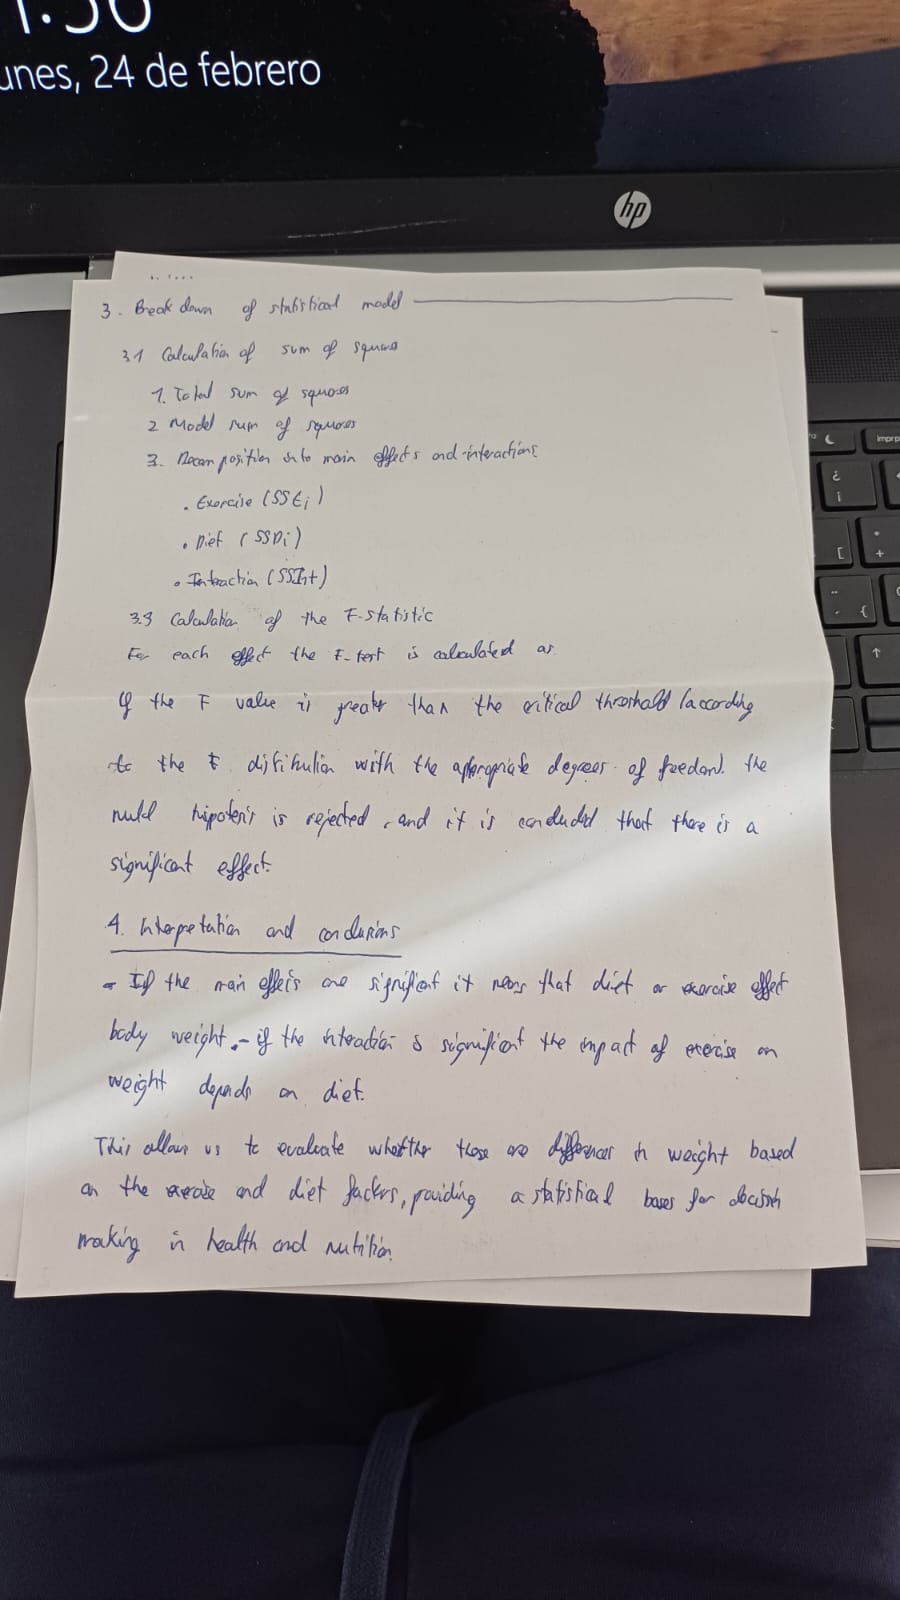 unes, 24 de febrero
hp
3. Break down of statistical model
3.1 Calculation of sum of squares
1. Total sum of squares
2 Model sum of squares
3. into main effects and interactions
. Exercise (SSEi)
. Diet (SSDi)
. Interaction (SSInt)
3.3 Calculation of the F-statistic
For each effect the F-test is calculated as
If the F value is greater than the critical threshold (according
to the F distribution with the appropriate degrees of freedom. the
null is rejected, and it is concluded that there is a
significant effect.
4. Interpretation and conclusions
- If the main effects are significant it means that diet or exercise effect
body weight. - if the interaction is significant the impact of exercise on
weight depends on diet.
This allows us to evaluate whether there are differences in weight based
on the exercise and diet factors, providing a statistical bases for decision
making in health and nutrition.